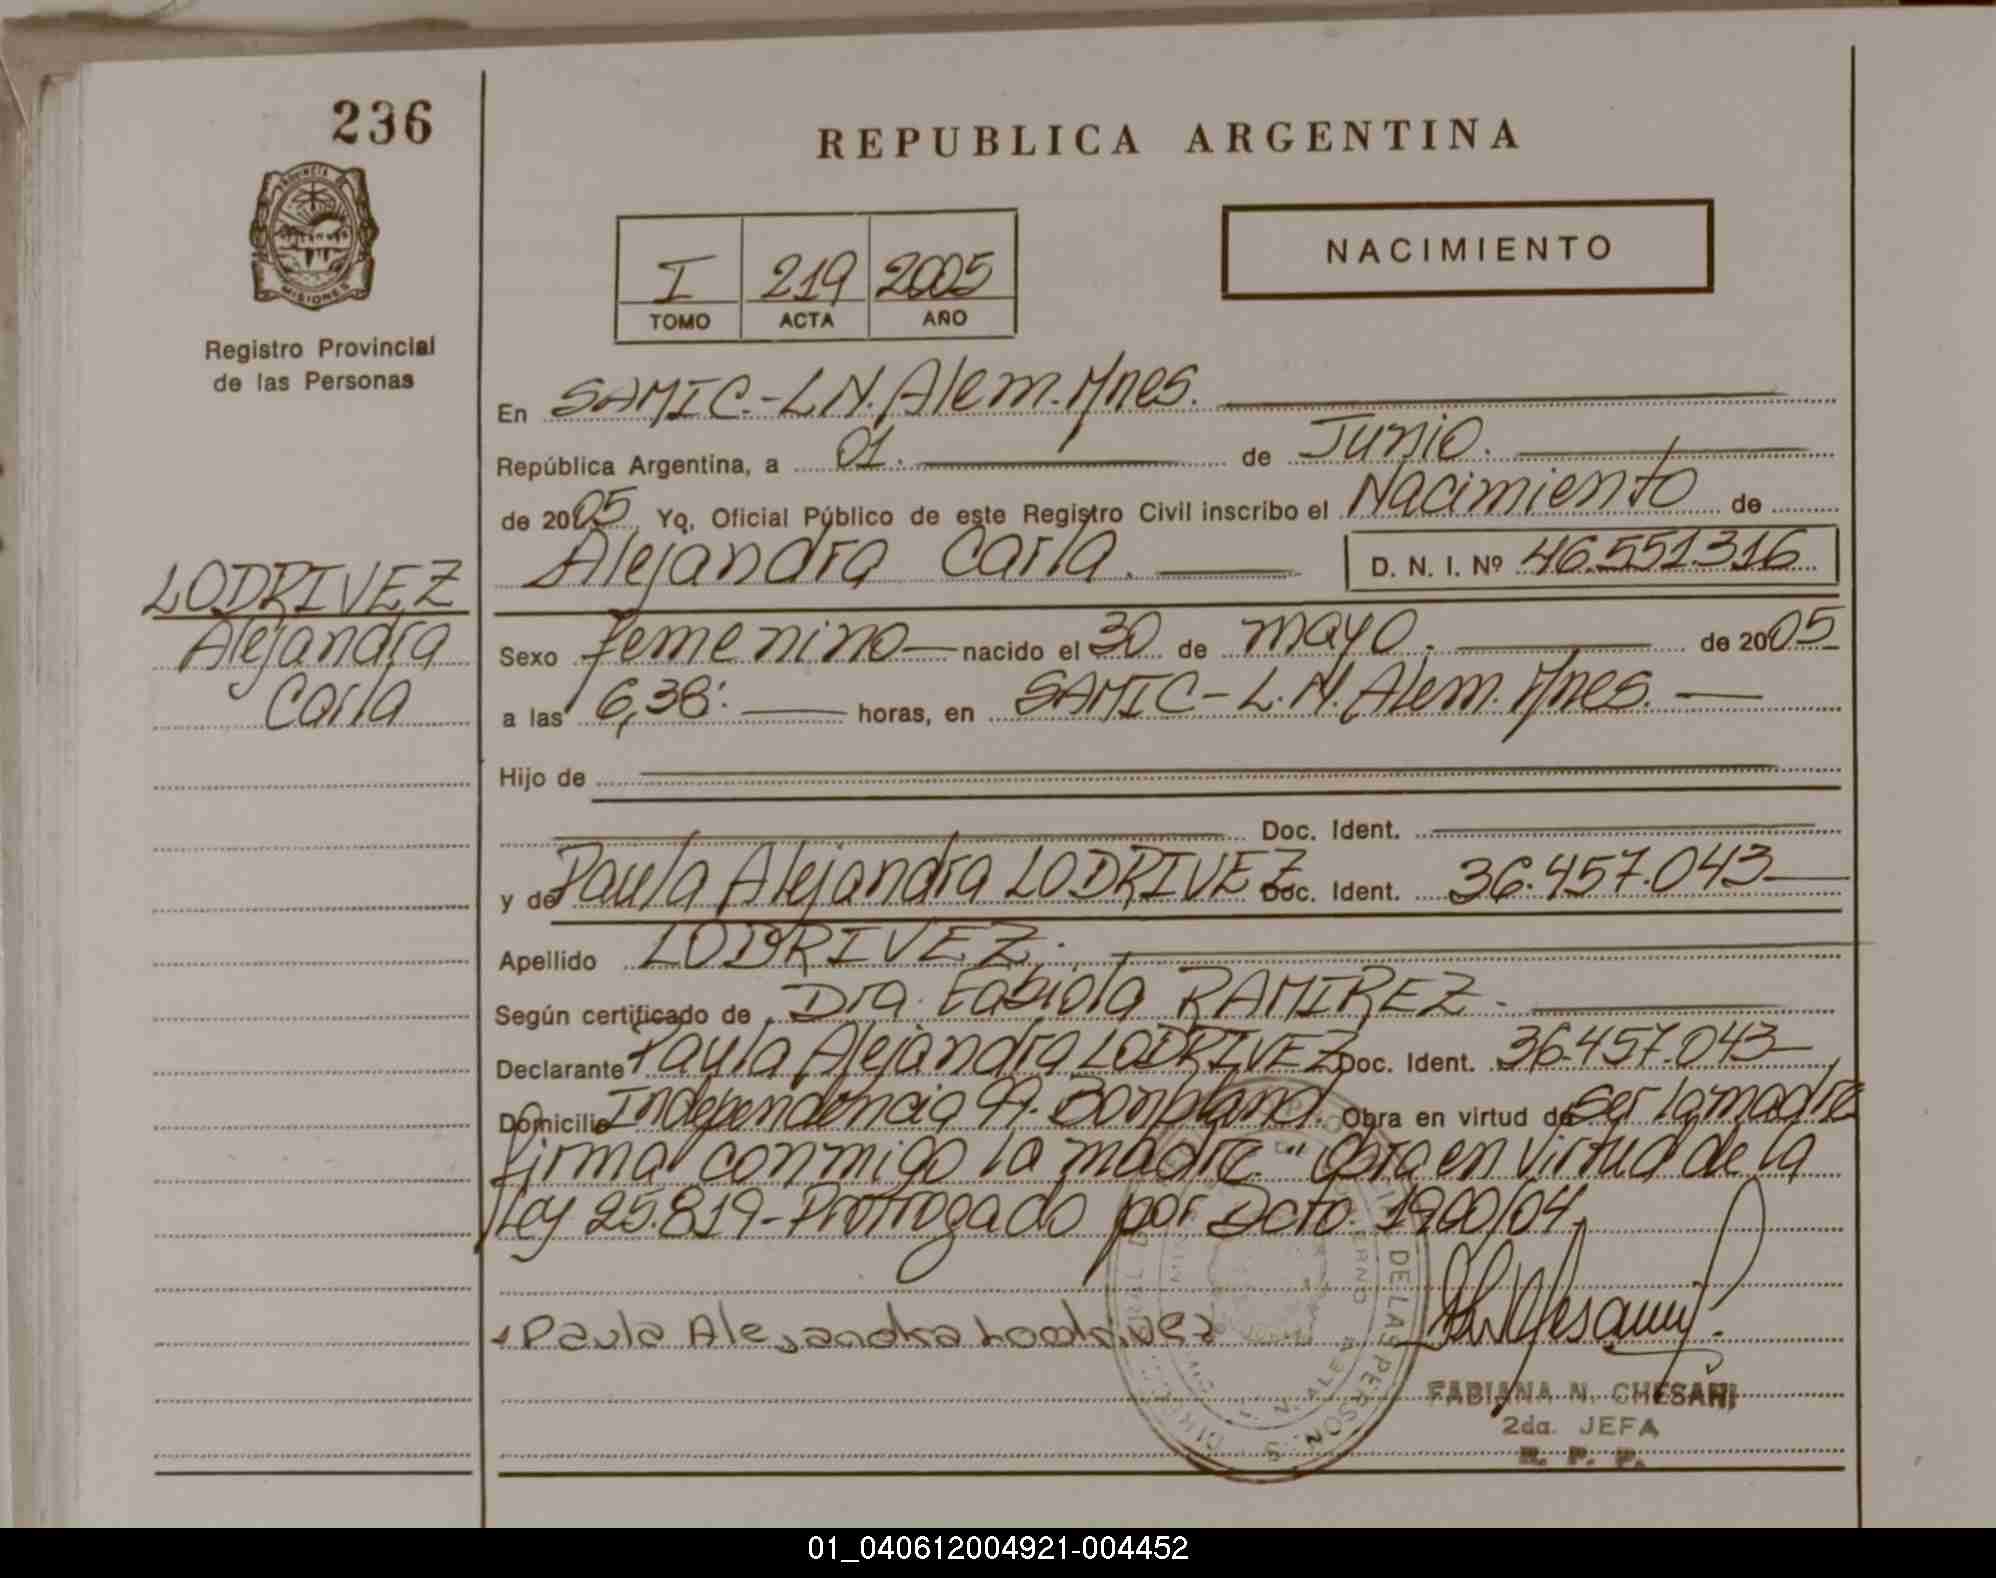 236
REPUBLICA ARGENTINA
PROVINCIA DE
MISIONES
NACIMIENTO
I 219 2005
TOMO ACTA AÑO
Registro Provincial
de las Personas
En SAMIC.-L N. Alem. Mnes.
República Argentina, a 01. de Junio.
de 2005 Yo, Oficial Público de este Registro Civil inscribo el Nacimiento de
Alejandra Carla. D. N. I. Nº 46.551.316
LODRIVEZ
Alejandra
Carla
Sexo femenino nacido el 30 de mayo. de 2005
a las 6,38: horas, en SAMIC-L.N. Alem. Mnes.
Hijo de
Doc. Ident.
y de Paula Alejandra LODRIVEZ Doc. Ident. 36.457.043
Apellido LODRIVEZ.
Según certificado de Dra. Fabiola RAMIREZ.
Declarante Paula Alejandra LODRIVEZ Doc. Ident. 36.457.043
Domicilio Independencia Bonpland. Obra en virtud de ser la madre
firma conmigo la madre "Obra en virtud de la
Ley 25.819-Prorrogado por Dcto. 1900/04,
Paula Alejandra Lodrivez
DE LAS PERSONAS
FABIANA N. CHESANI
2da. JEFA
R. P. P.
01_040612004921-004452